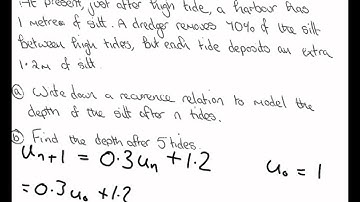 At present, just after high tide, a harbour has
1 metre of silt. A dredger removes 70% of the silt
between high tides, but each tide deposits an extra
1.2m of silt.
(a) Write down a recurrence relation to model the
depth of the silt after n tides.
(b) Find the depth after 5 tides.
u_{n+1} = 0.3u_n + 1.2 u_0 = 1
= 0.3u_0 + 1.2